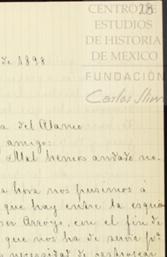 28
CENTRO DE
ESTUDIOS
DE HISTORIA
DE MEXICO
de 1898
FUNDACIÓN
Carlos Slim
a del Alamo
amigo:
Mal hemos andado no
a hora nos pusimos á
que hay entre la esqui
Arroyo, con el fin de
que nos ha de servir pª
necesidad de